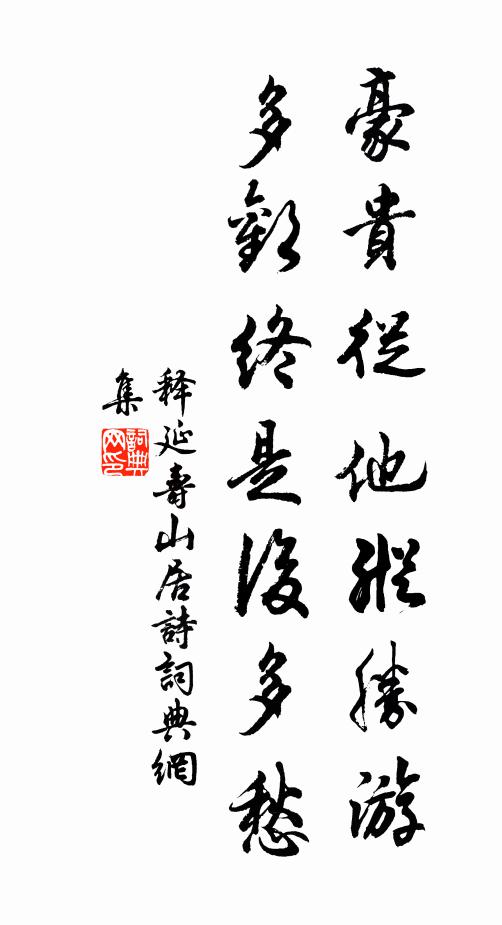 豪貴從他縱勝游
多歡終是後多愁
释延壽山居詩詞典網
集
詞典网印